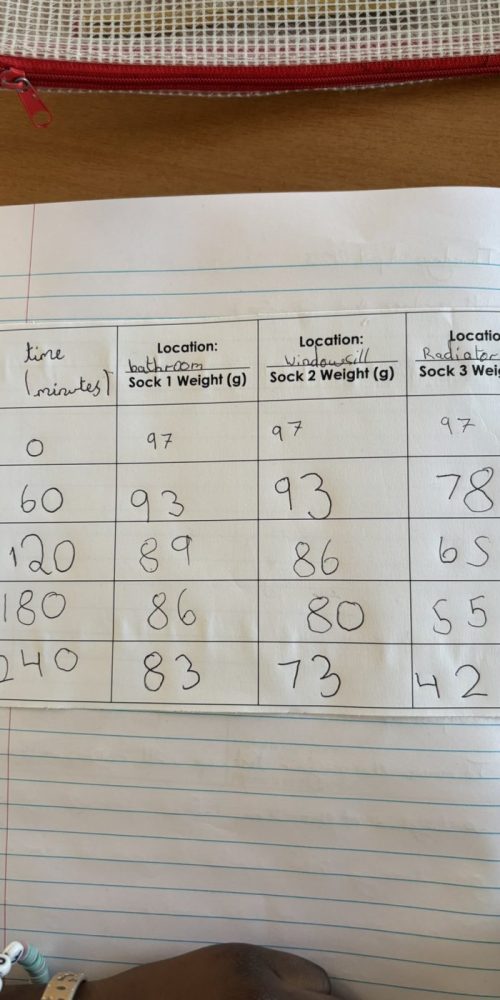 time
(minutes)
Location:
bathroom
Sock 1 Weight (g)
Location:
Windowsill
Sock 2 Weight (g)
Locatio
Radiator
Sock 3 Weig
0 97 97 97
60 93 93 78
120 89 86 65
180 86 80 55
240 83 73 42